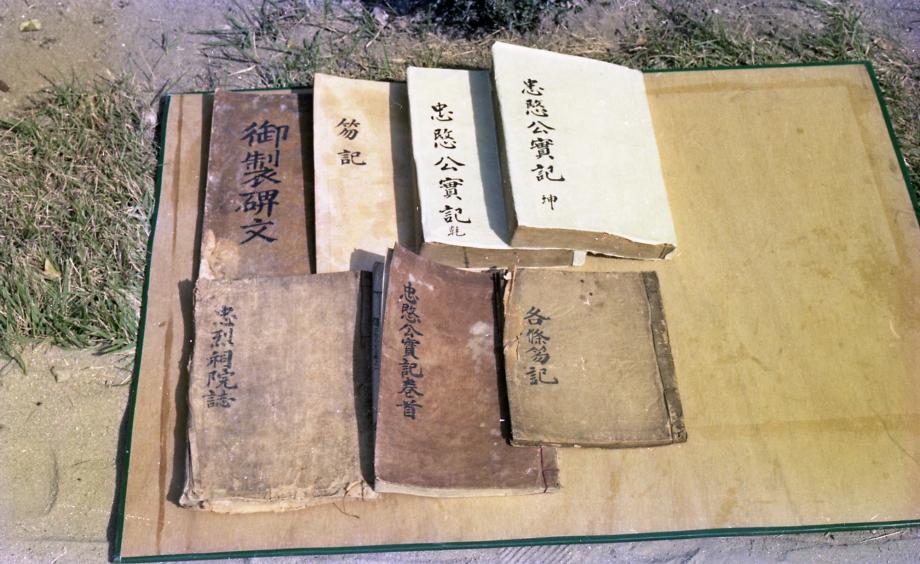 御製碑文
笏記
忠愍公實記 乾
忠愍公實記 坤
忠烈祠院誌
忠愍公實記卷首
各條笏記